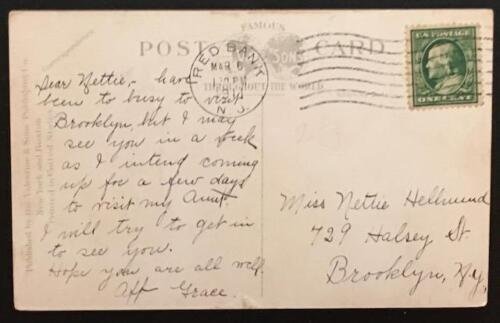 FAMOUS
POST CARD
& SONS
THROUGHOUT THE WORLD
RED BANK
MAR 6
1 30 PM
N.J.
U.S. POSTAGE
ONE CENT
Correspondence.
Published by The Valentine & Sons Publishing Co.
New York and Boston
Printed in United States
Dear Nettie, - have
been to busy to visit
Brooklyn, but I may
see you in a week
as I intend coming
up for a few days
to visit my Aunt.
I will try to get in
to see you.
Hope you are all well.
Aff Grace.
Miss Nettie Hellmund
729 Halsey St.
Brooklyn, Ny.